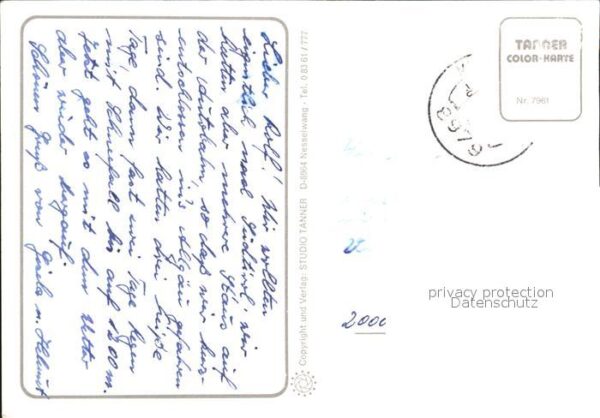 Lieber Rolf! Wir wollten
eigentlich nach Südtirol, wir
hatten aber mehrere Staus auf
der Autobahn, so daß wir kurz-
entschlossen ins Allgäu gefahren
sind. Wir hatten drei heiße
Tage, dann fast zwei Tage Regen
mit Schneefall bis auf 1200 m.
Jetzt geht es mit dem Wetter
aber wieder bergauf.
Schönen Gruß von Gisela u. Helmut
Copyright und Verlag: STUDIO TANNER D-8964 Nesselwang · Tel. 0 83 61 / 777
TANNER
COLOR-KARTE
Nr. 7961
2000
privacy protection
Datenschutz